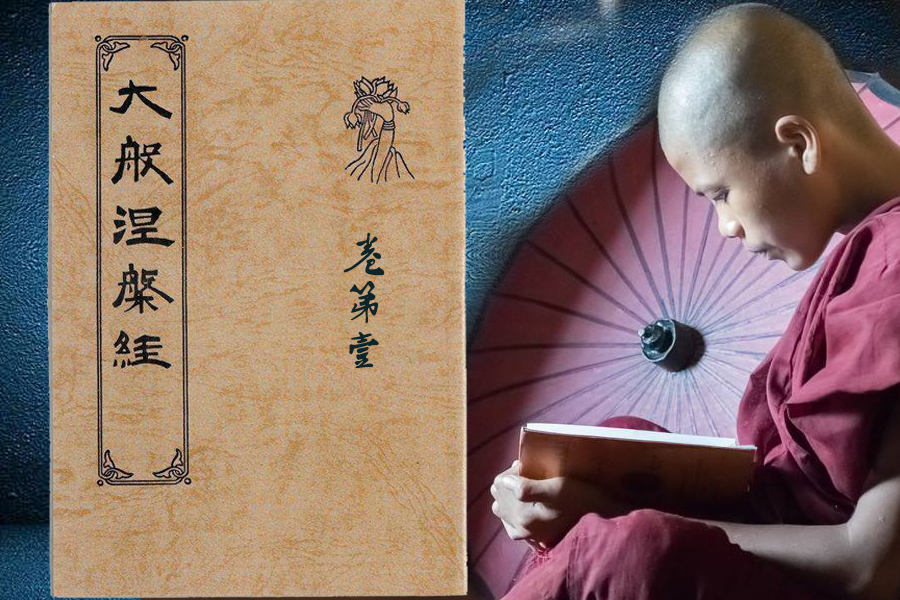 大般涅槃經
卷第壹